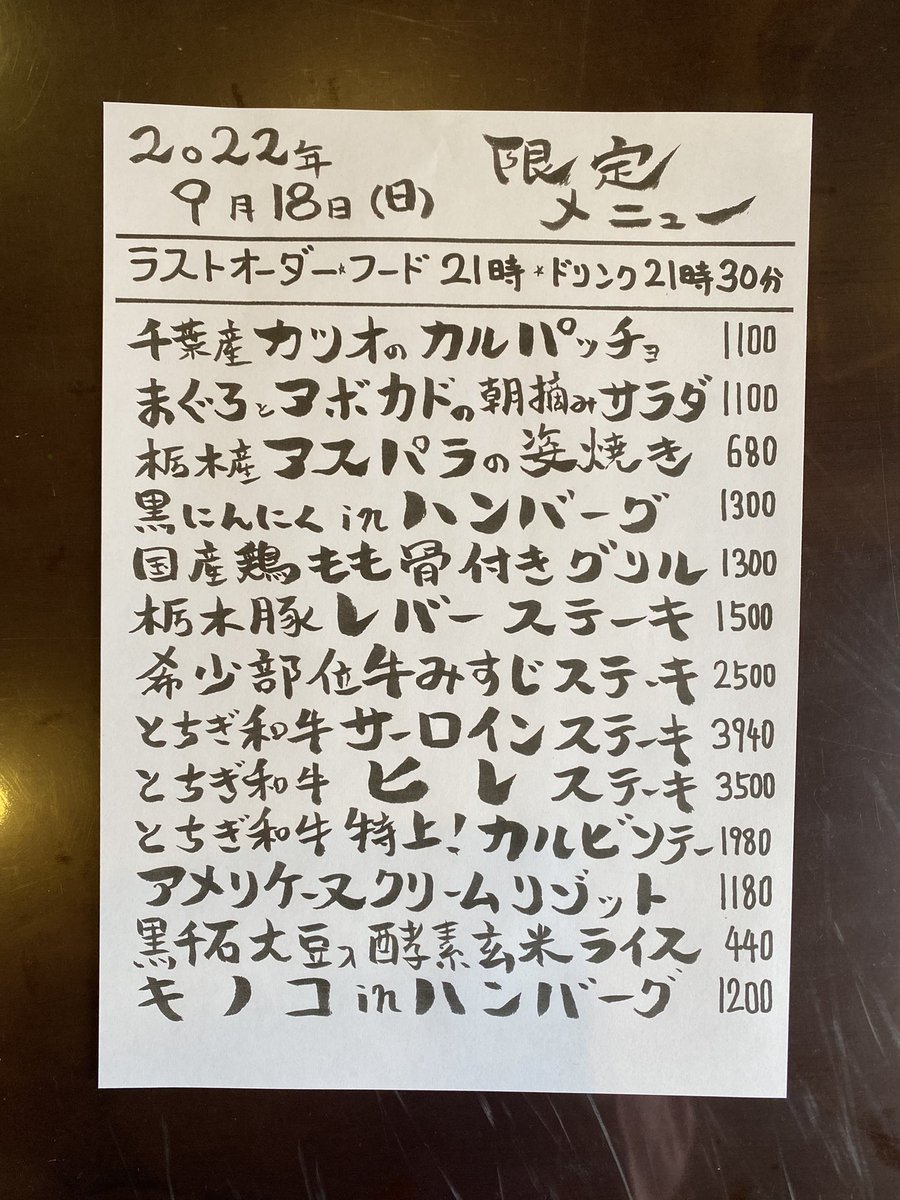 2022年
9月18日(日)
限定
メニュー
ラストオーダー*フード 21時*ドリンク21時30分
千葉産カツオのカルパッチョ 1100
まぐろとアボカドの朝摘みサラダ 1100
栃木産アスパラの姿焼き 680
黒にんにくinハンバーグ 1300
国産鶏もも骨付きグリル 1300
栃木豚レバーステーキ 1500
希少部位牛みすじステーキ 2500
とちぎ和牛サーロインステーキ 3940
とちぎ和牛ヒレステーキ 3500
とちぎ和牛特上!カルビソテー 1980
アメリケーヌクリームリゾット 1180
黒千石大豆入酵素玄米ライス 440
キノコinハンバーグ 1200